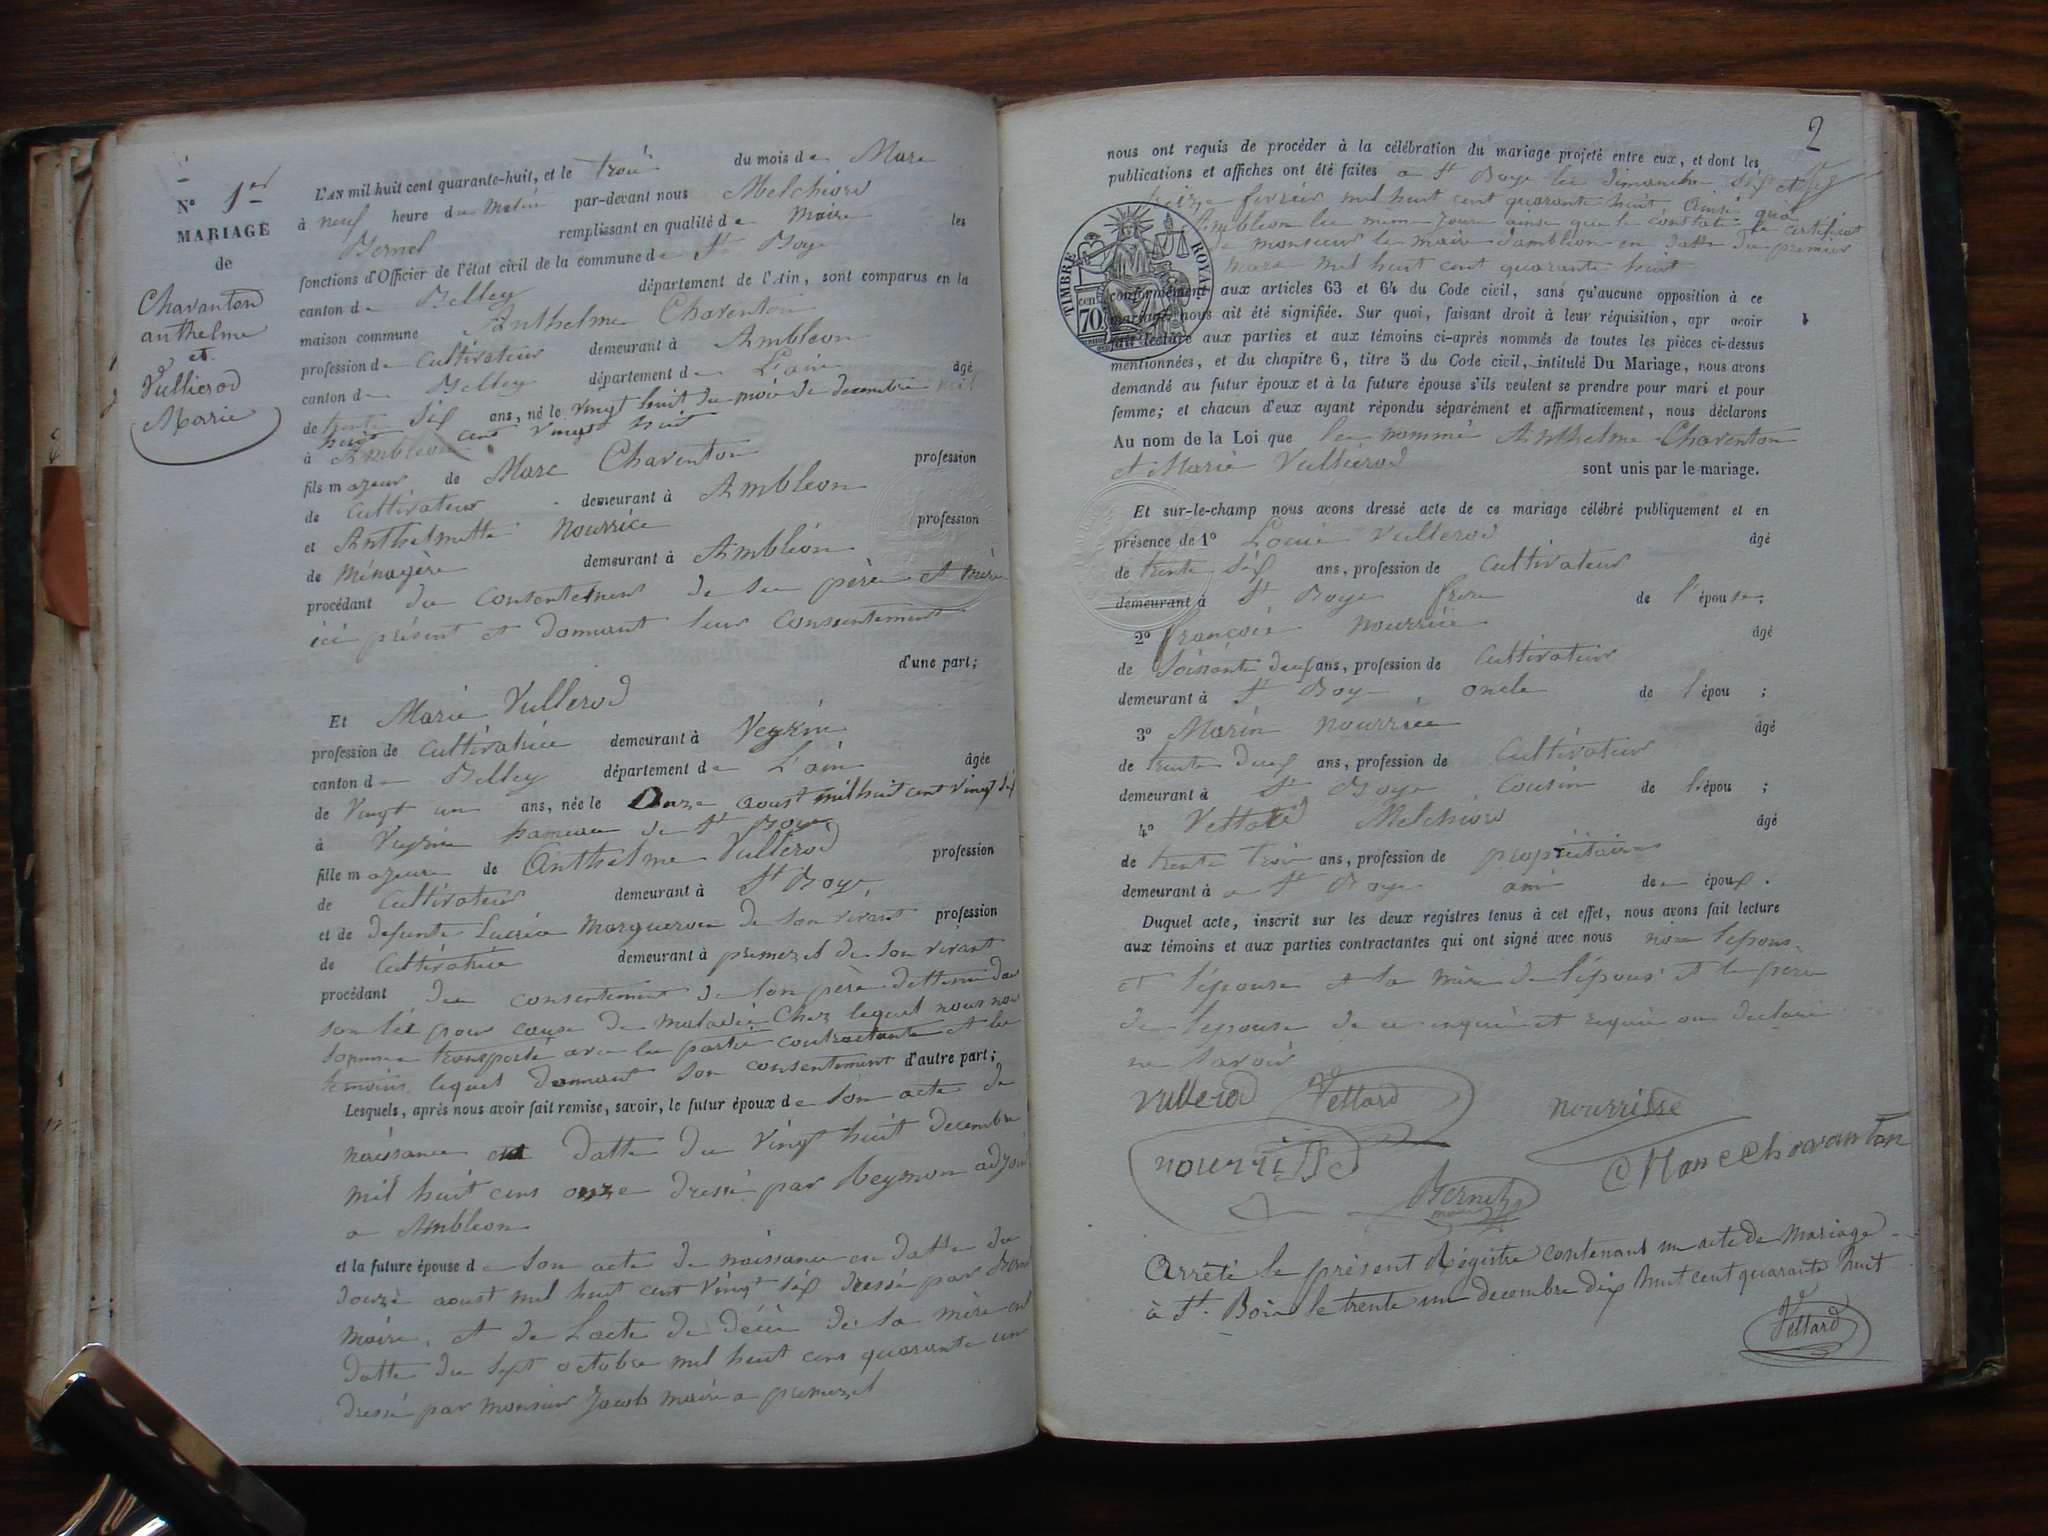 N° 1er
MARIAGE
de
Chavanton
anthelme
et
Vullierod
Marie
L'AN mil huit cent quarante-huit, et le trois du mois de Mars
à neuf heure du Matin par-devant nous Melchiord
Bernel remplissant en qualité de Maire les
fonctions d'Officier de l'état civil de la commune de St Boys
canton de Belley département de l'Ain, sont comparus en la
maison commune Anthelme Chaventon
profession de Cultivateur demeurant à Ambleon
canton de Belley département de L'ain âgé
de trente six ans, né le vingt huit du mois de decembre mil
huit cent vingt huit
à Ambleon
fils majeur de Marc Chaventon profession
de Cultivateur demeurant à Ambleon
et Anthelmette Nourrice profession
de Ménagère demeurant à Ambléon
procédant du consentement de ses père et mère
ici présent et donnant leur consentement
d'une part;
Et Marie Vullerod
profession de Cultivatrice demeurant à Veyrin
canton de Belley département de L'ain âgée
de vingt un ans, née le Onze aoust mil huit cent vingt six
à Veyrin hameau de St Boys
fille majeure de Anthelme Vullerod profession
de Cultivateur demeurant à St Boys
et de defunte Lucrèce Margueron de son vivant profession
de Cultivatrice demeurant à premezel de son vivant
procédant du consentement de son père dettenu dans
son lit pour cause de maladie Chez lequel nous nous
sommes transporté avec les partie contractante et les
temoins lequel donnant son consentement d'autre part;
Lesquels, après nous avoir fait remise, savoir, le futur époux de son acte de
naissance en datte du vingt huit decembre
mil huit cent onze dressé par Reymon adjoint
a Ambleon
et la future épouse de son acte de naissance en datte du
douze aoust mil huit cent vingt six dressé par
maire, et de l'acte de décès de sa mère en
datte du sept octobre mil huit cent quarante un
dressé par monsieur Jacob maire a premezel
2
nous ont requis de procéder à la célébration du mariage projeté entre eux, et dont les
publications et affiches ont été faites a St Boys les dimanche six et
treize fevrier mil huit cent quarante huit Ainsi qu'à
Ambleon les meme jours ainsi que le constate le certificat
de monsieur le maire d'ambleon en datte du premier
mars mil huit cent quarante huit
TIMBRE ROYAL
70 cent
conformément aux articles 63 et 64 du Code civil, sans qu'aucune opposition à ce
mariage nous ait été signifiée. Sur quoi, faisant droit à leur réquisition, apr avoir
fait lecture aux parties et aux témoins ci-après nommés de toutes les pièces ci-dessus
mentionnées, et du chapitre 6, titre 5 du Code civil, intitulé Du Mariage, nous avons
demandé au futur époux et à la future épouse s'ils veulent se prendre pour mari et pour
femme; et chacun d'eux ayant répondu séparément et affirmativement, nous déclarons
Au nom de la Loi que les nommé Anthelme Chaventon
et Marie Vullierod sont unis par le mariage.
Et sur-le-champ nous avons dressé acte de ce mariage célébré publiquement et en
présence de 1° Louis Vullerod âgé
de trente six ans, profession de Cultivateur
demeurant à St Boys frère de l'épouse;
2° françois Nourrice âgé
de soissante deux ans, profession de Cultivateur
demeurant à St Boys, oncle de l'épou ;
3° Marin Nourrice âgé
de trente deux ans, profession de Cultivateur
demeurant à St Boys Cousin de l'épou ;
4° Vettard Melchiord âgé
de trente trois ans, profession de propriétaire
demeurant à a St Boys ami de époux.
Duquel acte, inscrit sur les deux registres tenus à cet effet, nous avons fait lecture
aux témoins et aux parties contractantes qui ont signé avec nous non l'épous
et l'épouse et la mère de l'épous et le père
de l'épouse de ce enquis et requis on declaré
ne savoir
Vullerod Vettard nourrisse
nourrisse Marc Chavanton
Bernel
maire
Arrêté le présent Régistre contenant un acte de mariage
à St. Bois le trente un decembre dix huit cent quarante huit
Vettard